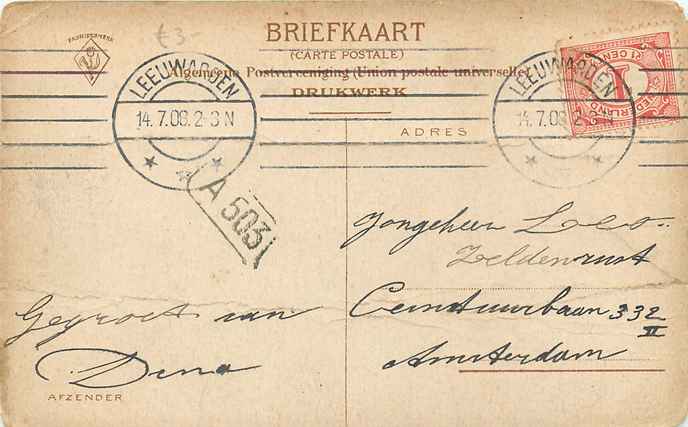 €3-
FABRIEKSMERK
BRIEFKAART
(CARTE POSTALE)
Algemeene Postvereeniging (Union postale universelle)
DRUKWERK
ADRES
LEEUWARDEN
14.7.08.2-3N
LEEUWARDEN
14.7.08.2-3N
NEDERLAND
1 CENT
1
A 503
Jongeheer Leo
Zeldenrust
Ceintuurbaan 332
II
Amsterdam
Gegroet van
Dina
AFZENDER